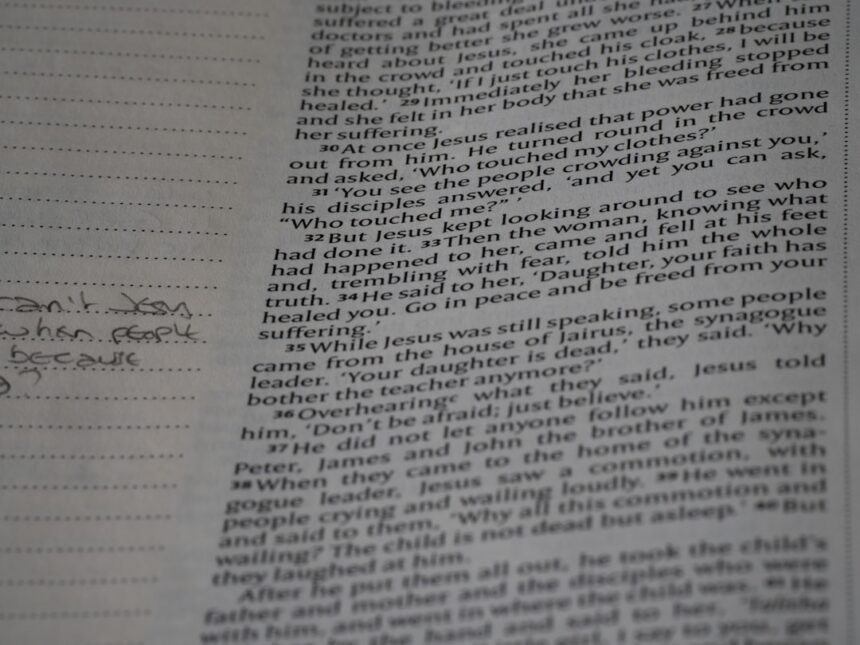 subject to bleeding
suffered a great deal
doctors and had spent all she
of getting better she grew worse. 27 When
heard about Jesus, she came up behind him
in the crowd and touched his cloak, 28 because
she thought, ‘If I just touch his clothes, I will be
healed.’ 29 Immediately her bleeding stopped
and she felt in her body that she was freed from
her suffering.
30 At once Jesus realised that power had gone
out from him. He turned round in the crowd
and asked, ‘Who touched my clothes?’
31 ‘You see the people crowding against you,’
his disciples answered, ‘and yet you can ask,
“Who touched me?” ’
32 But Jesus kept looking around to see who
had done it. 33 Then the woman, knowing what
had happened to her, came and fell at his feet
and, trembling with fear, told him the whole
truth. 34 He said to her, ‘Daughter, your faith has
healed you. Go in peace and be freed from your
suffering.’
35 While Jesus was still speaking, some people
came from the house of Jairus, the synagogue
leader. ‘Your daughter is dead,’ they said. ‘Why
bother the teacher anymore?’
36 Overhearing c what they said, Jesus told
him, ‘Don’t be afraid; just believe.’
37 He did not let anyone follow him except
Peter, James and John the brother of James.
38 When they came to the home of the syna-
gogue leader, Jesus saw a commotion, with
people crying and wailing loudly. 39 He went in
and said to them, ‘Why all this commotion and
wailing? The child is not dead but asleep.’ 40 But
they laughed at him.
After he put them all out, he took the child’s
father and mother and the disciples who were
with him, and went in where the child was. 41 He
by the hand and said to her, ‘Talitha
girl, I say to you, get
can't
when people
because